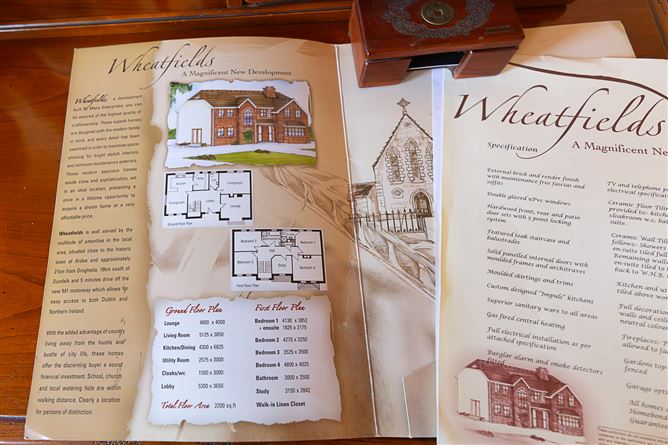 Wheatfields
A Magnificent New Development
Wheatfields, a development
built by Marro Enterprises, you can
be assured of the highest quality of
craftsmanship. These superb homes
are designed with the modern family
in mind, and every detail has been
examined in order to maximise space
allowing for bright stylish interiors
and minimum maintenance exteriors.
These modern spacious homes
exude class and sophistication, set
in an ideal location, presenting a
once in a lifetime opportunity to
acquire a dream home at a very
affordable price.
Wheatfields is well served by the
multitude of amenities in the local
area, situated close to the historic
town of Ardee and approximately
21km from Drogheda, 18km south of
Dundalk and 5 minutes drive off the
new M1 motorway which allows for
easy access to both Dublin and
Northern Ireland.
With the added advantage of country
living away from the hustle and
bustle of city life, these homes
offer the discerning buyer a sound
financial investment. School, church
and local watering hole are within
walking distance. Clearly a location
for persons of distinction.
Kitchen
Livingroom
Lobby
Lounge
Ground Floor Plan
Bedroom 2
Bedroom 1
Bedroom 3
Study
Bedroom 4
First Floor Plan
Ground Floor Plan
Lounge 4800 x 4000
Living Room 5125 x 3850
Kitchen/Dining 4300 x 6825
Utility Room 2575 x 3000
Cloaks/wc 1500 x 3000
Lobby 5300 x 3650
Total Floor Area 2200 sq.ft
First Floor Plan
Bedroom 1 4130 x 3852
+ ensuite 1825 x 2175
Bedroom 2 4270 x 3250
Bedroom 3 3525 x 3500
Bedroom 4 4800 x 4025
Bathroom 3000 x 2500
Study 3150 x 2842
Walk-in Linen Closet
Wheatfields
A Magnificent Ne
Specification
External brick and render finish
with maintenance free fascias and
soffits
Double glazed uPvc windows
Hardwood front, rear and patio
door sets with 5 point locking
system
Featured teak staircase and
balustrades
Solid panelled internal doors with
moulded frames and architraves
Moulded skirtings and trims
Custom designed "Impuls" kitchens
Superior sanitary ware to all areas
Gas fired central heating
Full electrical installation as per
attached specification
Burglar alarm and smoke detectors
fitted
TV and telephone
electrical specificat
Ceramic Floor Tili
provided to: kitche
cloakroom w.c. ba
suite.
Ceramic Wall Til
follows: Showers
en-suite tiled full
Remaining walls
en-suite tiled to
back to W.H.B.
Kitchen and ut
tiled above wor
Full decoration
walls and ceili
neutral colour
Fireplaces: P
allowed to
Gardens top
and seeded
Garage optio
All homes
Homebond
Guarantee